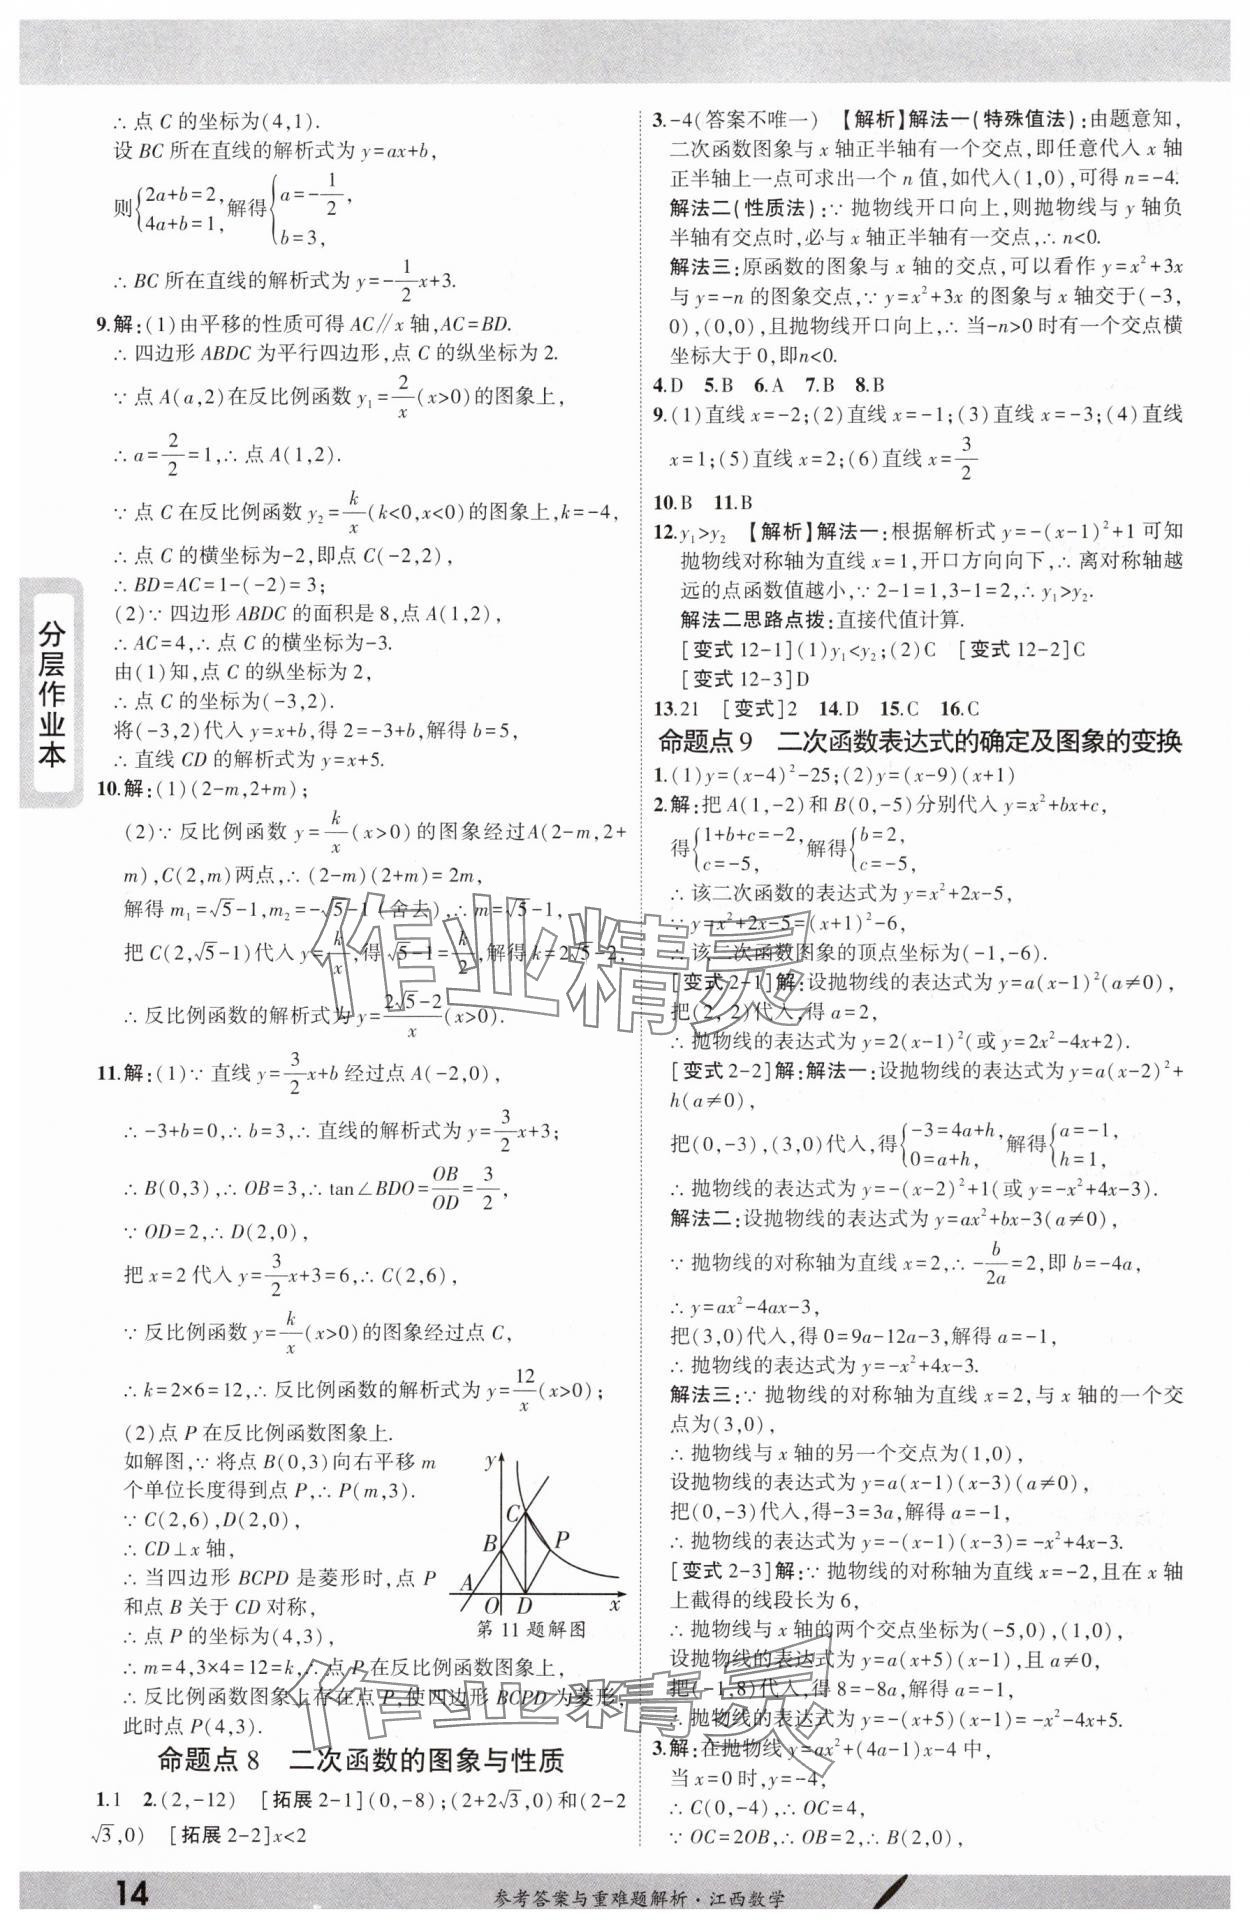 ∴ 点 C 的坐标为(4,1).
设 BC 所在直线的解析式为 y=ax+b,
则{2a+b=2, 4a+b=1, 解得{a=-1/2, b=3,
∴ BC 所在直线的解析式为 y=-1/2x+3.
9.解:(1)由平移的性质可得 AC∥x 轴,AC=BD.
∴ 四边形 ABDC 为平行四边形,点 C 的纵坐标为 2.
∵ 点 A(a,2)在反比例函数 y₁=2/x(x>0)的图象上,
∴ a=2/2=1,∴ 点 A(1,2).
∵ 点 C 在反比例函数 y₂=k/x(k<0,x<0)的图象上,k=-4,
∴ 点 C 的横坐标为-2,即点 C(-2,2),
∴ BD=AC=1-(-2)=3;
(2)∵ 四边形 ABDC 的面积是 8,点 A(1,2),
∴ AC=4,∴ 点 C 的横坐标为-3.
由(1)知,点 C 的纵坐标为 2,
∴ 点 C 的坐标为(-3,2).
将(-3,2)代入 y=x+b,得 2=-3+b,解得 b=5,
∴ 直线 CD 的解析式为 y=x+5.
10.解:(1)(2-m,2+m);
(2)∵ 反比例函数 y=k/x(x>0)的图象经过A(2-m,2+
m),C(2,m)两点,∴ (2-m)(2+m)=2m,
解得 m₁=√5-1,m₂=-√5-1(舍去),∴ m=√5-1,
把 C(2,√5-1)代入 y=k/x,得 √5-1=k/2,解得 k=2√5-2,
∴ 反比例函数的解析式为 y=(2√5-2)/x(x>0).
11.解:(1)∵ 直线 y=3/2x+b 经过点 A(-2,0),
∴ -3+b=0,∴ b=3,∴ 直线的解析式为 y=3/2x+3;
∴ B(0,3),∴ OB=3,∴ tan∠BDO=OB/OD=3/2,
∵ OD=2,∴ D(2,0),
把 x=2 代入 y=3/2x+3=6,∴ C(2,6),
∵ 反比例函数 y=k/x(x>0)的图象经过点 C,
∴ k=2×6=12,∴ 反比例函数的解析式为 y=12/x(x>0);
(2)点 P 在反比例函数图象上.
如解图,∵ 将点 B(0,3)向右平移 m
个单位长度得到点 P,∴ P(m,3).
∵ C(2,6),D(2,0),
∴ CD⊥x 轴,
∴ 当四边形 BCPD 是菱形时,点 P
和点 B 关于 CD 对称,
∴ 点 P 的坐标为(4,3),
y
C
B
P
A
O
D
x
第 11 题解图
∴ m=4,3×4=12=k,∴ 点 P 在反比例函数图象上,
∴ 反比例函数图象上存在点 P,使四边形 BCPD 为菱形,
此时点 P(4,3).
命题点 8 二次函数的图象与性质
1.1 2.(2,-12) [拓展 2-1](0,-8);(2+2√3,0)和(2-2
√3,0) [拓展 2-2]x<2
3.-4(答案不唯一) 【解析】解法一(特殊值法):由题意知,
二次函数图象与 x 轴正半轴有一个交点,即任意代入 x 轴
正半轴上一点可求出一个 n 值,如代入(1,0),可得 n=-4.
解法二(性质法):∵ 抛物线开口向上,则抛物线与 y 轴负
半轴有交点时,必与 x 轴正半轴有一交点,∴ n<0.
解法三:原函数的图象与 x 轴的交点,可以看作 y=x²+3x
与 y=-n 的图象交点,∵ y=x²+3x 的图象与 x 轴交于(-3,
0),(0,0),且抛物线开口向上,∴ 当-n>0 时有一个交点横
坐标大于 0,即n<0.
4.D 5.B 6.A 7.B 8.B
9.(1)直线 x=-2;(2)直线 x=-1;(3)直线 x=-3;(4)直线
x=1;(5)直线 x=2;(6)直线 x=3/2
10.B 11.B
12.y₁>y₂ 【解析】解法一:根据解析式 y=-(x-1)²+1 可知
抛物线对称轴为直线 x=1,开口方向向下,∴ 离对称轴越
远的点函数值越小,∵ 2-1=1,3-1=2,∴ y₁>y₂.
解法二思路点拨:直接代值计算.
[变式 12-1](1)y₁<y₂;(2)C [变式 12-2]C
[变式 12-3]D
13.21 [变式]2 14.D 15.C 16.C
命题点 9 二次函数表达式的确定及图象的变换
1.(1)y=(x-4)²-25;(2)y=(x-9)(x+1)
2.解:把 A(1,-2)和 B(0,-5)分别代入 y=x²+bx+c,
得{1+b+c=-2, c=-5, 解得{b=2, c=-5,
∴ 该二次函数的表达式为 y=x²+2x-5,
∵ y=x²+2x-5=(x+1)²-6,
∴ 该二次函数图象的顶点坐标为(-1,-6).
[变式 2-1]解:设抛物线的表达式为 y=a(x-1)²(a≠0),
把(2,2)代入,得 a=2,
∴ 抛物线的表达式为 y=2(x-1)²(或 y=2x²-4x+2).
[变式 2-2]解:解法一:设抛物线的表达式为 y=a(x-2)²+
h(a≠0),
把(0,-3),(3,0)代入,得{-3=4a+h, 0=a+h, 解得{a=-1, h=1,
∴ 抛物线的表达式为 y=-(x-2)²+1(或 y=-x²+4x-3).
解法二:设抛物线的表达式为 y=ax²+bx-3(a≠0),
∵ 抛物线的对称轴为直线 x=2,∴ -b/2a=2,即 b=-4a,
∴ y=ax²-4ax-3,
把(3,0)代入,得 0=9a-12a-3,解得 a=-1,
∴ 抛物线的表达式为 y=-x²+4x-3.
解法三:∵ 抛物线的对称轴为直线 x=2,与 x 轴的一个交
点为(3,0),
∴ 抛物线与 x 轴的另一个交点为(1,0),
设抛物线的表达式为 y=a(x-1)(x-3)(a≠0),
把(0,-3)代入,得-3=3a,解得 a=-1,
∴ 抛物线的表达式为 y=-(x-1)(x-3)=-x²+4x-3.
[变式 2-3]解:∵ 抛物线的对称轴为直线 x=-2,且在 x 轴
上截得的线段长为 6,
∴ 抛物线与 x 轴的两个交点坐标为(-5,0),(1,0),
设抛物线的表达式为 y=a(x+5)(x-1),且 a≠0,
把(-1,8)代入,得 8=-8a,解得 a=-1,
∴ 抛物线的表达式为 y=-(x+5)(x-1).
3.解:在抛物线 y=ax²+(4a-1)x-4 中,
当 x=0 时,y=-4,
∴ C(0,-4),∴ OC=4,
∵ OC=2OB,∴ OB=2,∴ B(2,0),
分层作业本
作业精灵
作业精灵
14
参考答案与重难题解析·江西数学